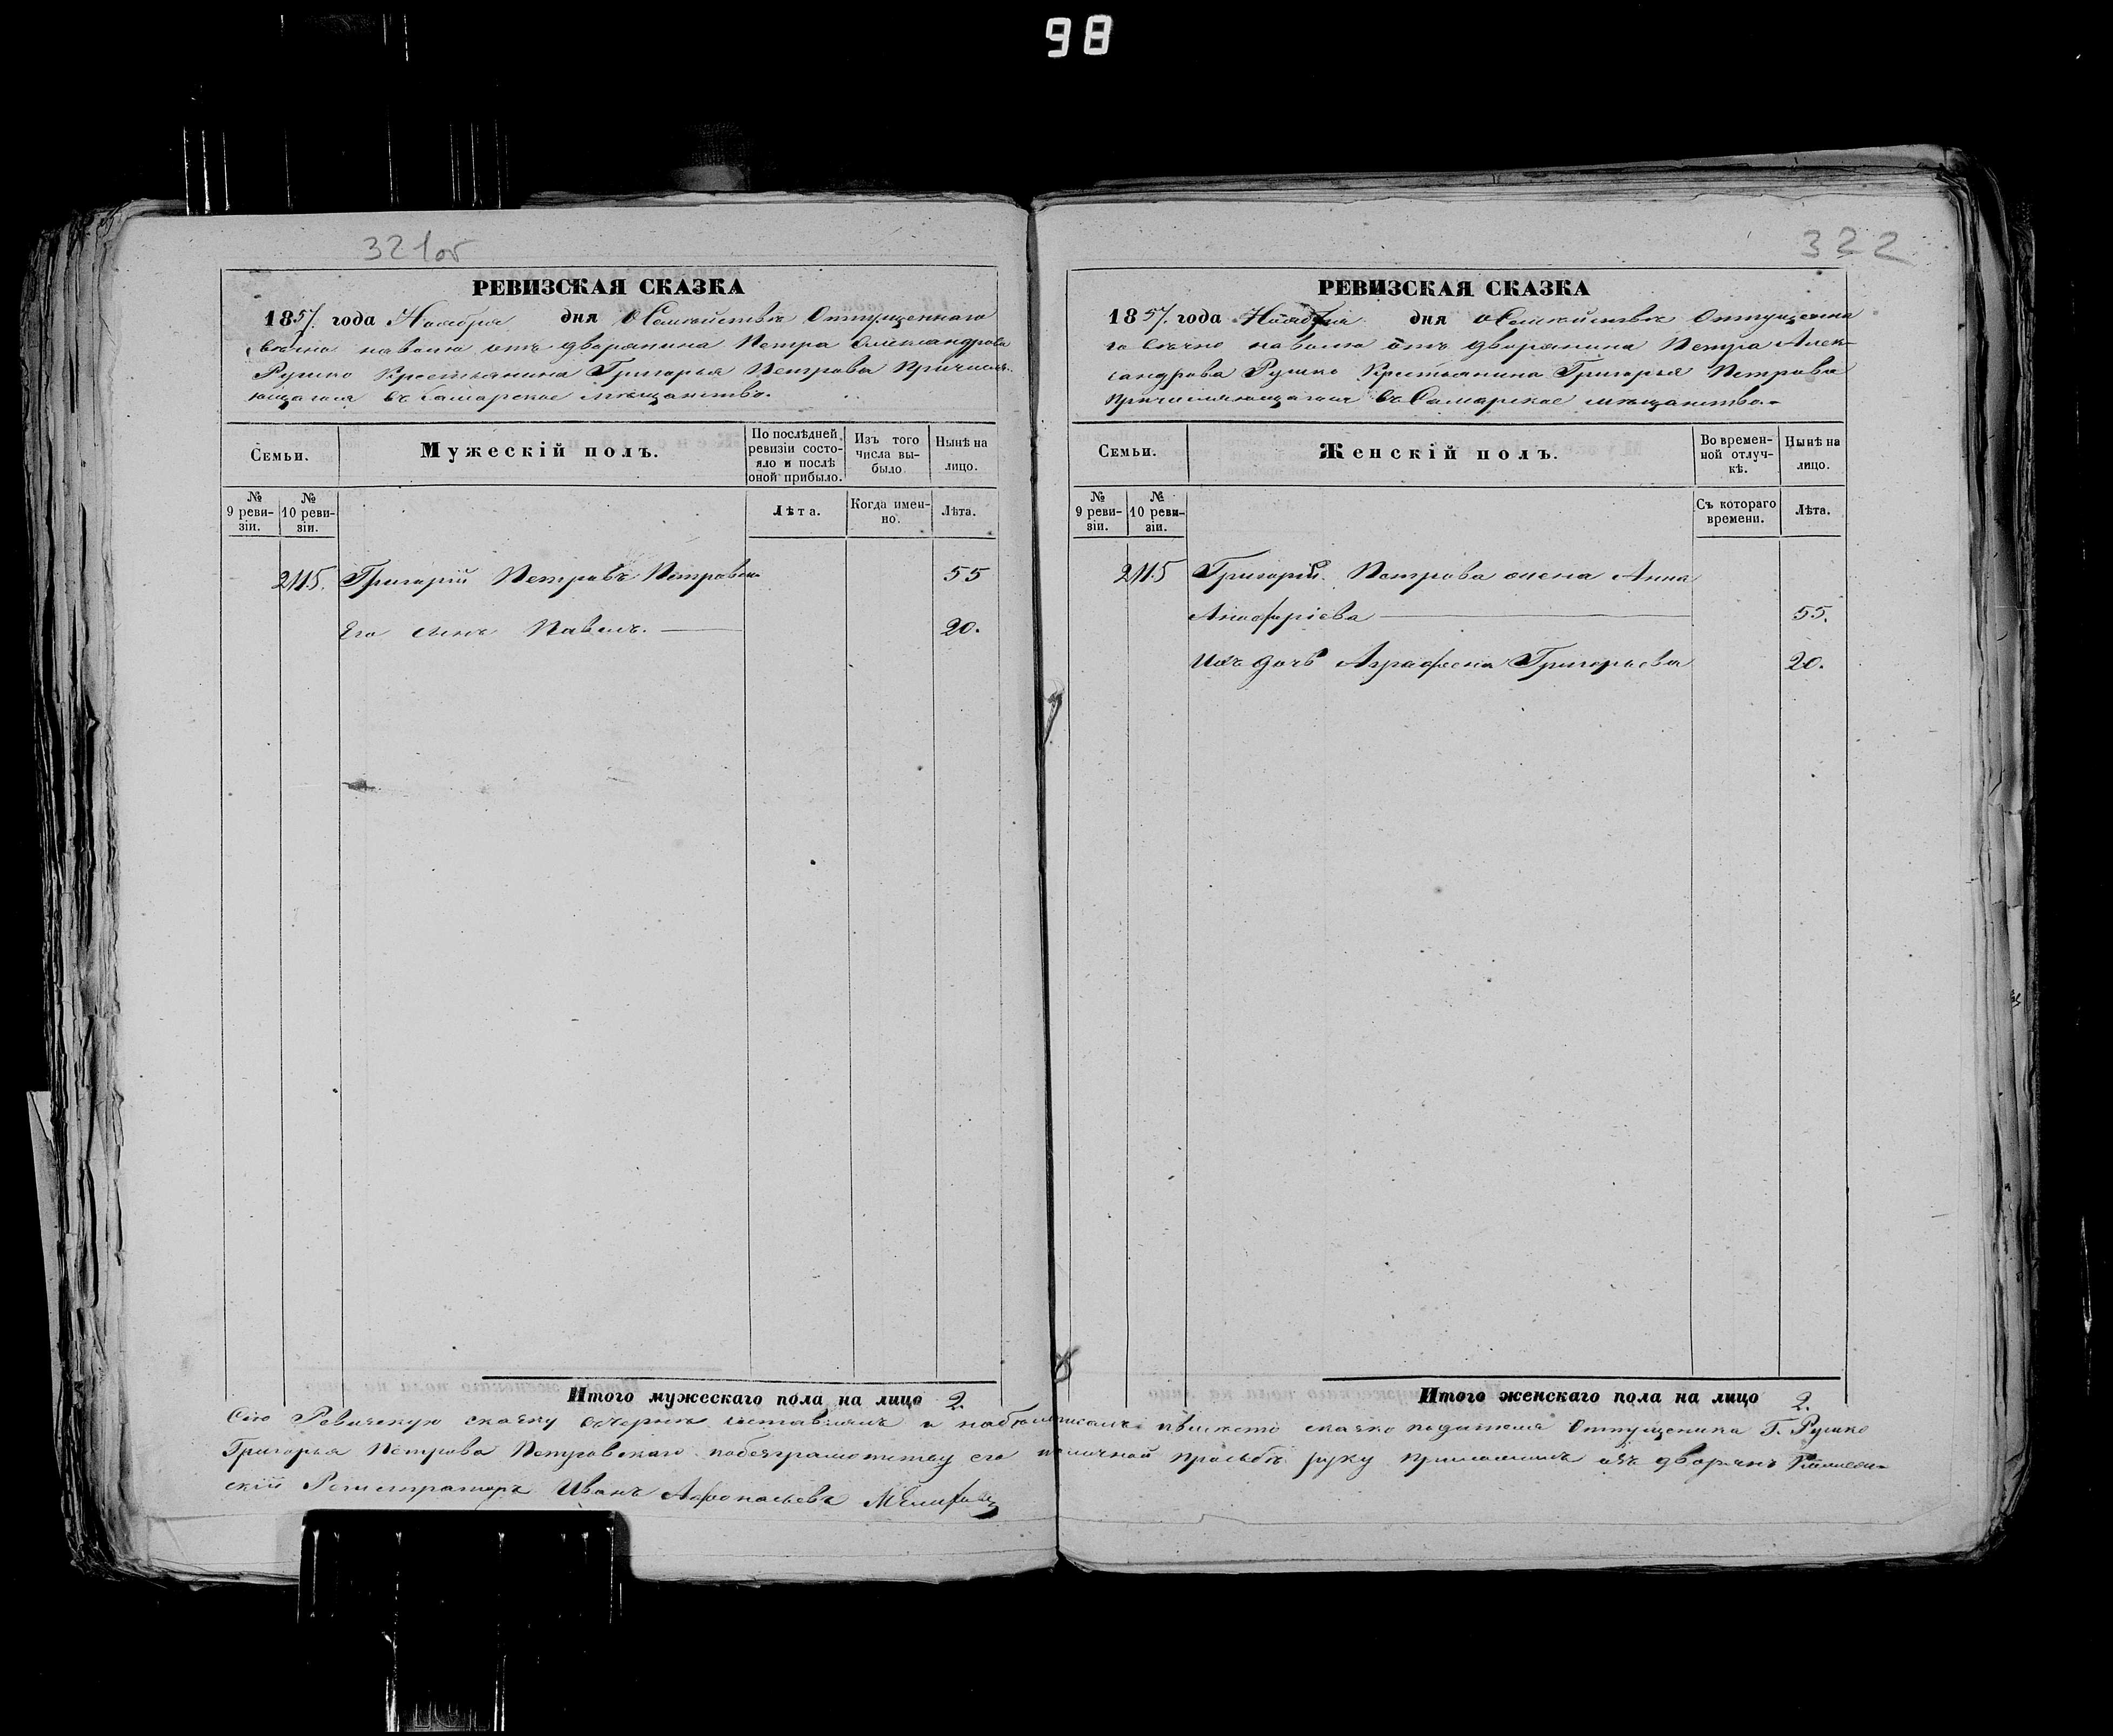 98
321об
РЕВИЗСКАЯ СКАЗКА
1857. года Ноября дня о Семействѣ Отпущеннаго
вѣчно наволю отъ дворянина Петра Александрова
Рушко Крестьянина Григорья Петрова Причисля-
ющагося въ Самарское мѣщанство.
Семьи.
Мужескій полъ.
По послѣдней ревизіи состо-
яло и послѣ оной прибыло.
Изъ того числа вы-
было.
Нынѣ на лицо.
№ 9 реви-
зіи.
№ 10 реви-
зіи.
Лѣта.
Когда имен-
но.
Лѣта.
2115. Григорій Петровъ Петровск. 55
Его сынъ Павелъ. 20.
Итого мужескаго пола на лицо 2.
322
РЕВИЗСКАЯ СКАЗКА
1857. года Ноября дня о Семействѣ Отпущенна
го вѣчно наволю отъ дворянина Петра Алек-
сандрова Рушко Крестьянина Григорья Петрова
Причисляющагося въ Самарское мѣщанство.
Семьи.
Женскій полъ.
Во времен-
ной отлуч-
кѣ.
Нынѣ на лицо.
№ 9 реви-
зіи.
№ 10 реви-
зіи.
Съ котораго времени.
Лѣта.
2115 Григорія Петрова жена Анна
55.
Ихъ дочь Аграфена Григорьева 20.
Итого женскаго пола на лицо 2.
Сію Ревизскую сказку составлялъ и сказко подателя Отпущеника Г. Рушко
Григорья Петрова Петровскаго побезграмотству его личной просьбѣ руку приложилъ изъ дворянъ
скій Регистраторъ Иванъ Афонасьевъ